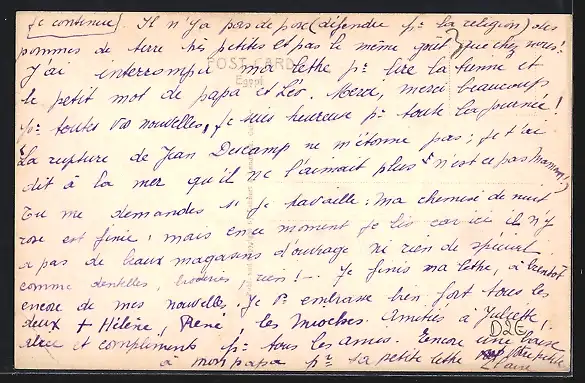 [Je continue]. Il n'y a pas de porc (défendu pr la religion) des
pommes de terre très petites et pas le même goût que chez nous!
J'ai interrompu ma lettre pr lire la tienne et
POST CARD
Egypt
le petit mot de papa et Léo. Merci, merci beaucoup
pr toutes vos nouvelles, je suis heureuse pr toute la journée!
La rupture de Jean Ducamp ne m'étonne pas; je t'ai
dit à la mer qu'il ne l'aimait plus n'est ce pas maman?
Tu me demandes si je travaille: ma chemise de nuit
rose est finie; mais en ce moment je lis car ici il n'y
a pas de beaux magasins d'ouvrage ni rien de spécial
comme dentelles, broderies, rien!- Je finis ma lettre, à bientôt
encore de mes nouvelles. Je vs embrasse bien fort tous les
deux + Hélène, René, les mioches. Amitiés à Juliette!
et compliments pr tous les amis. Encore une baise
à mon papa pr sa petite lettre Votre petite
Claire